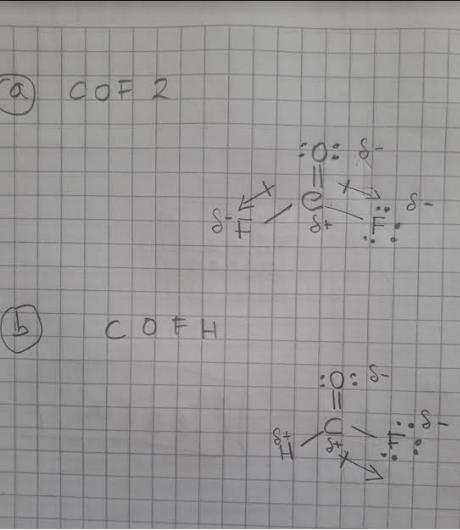 a COF2
:O: δ-
C
δ- F δ+ F δ-
b COFH
:O: δ-
C δ-
δ+ H δ+ F